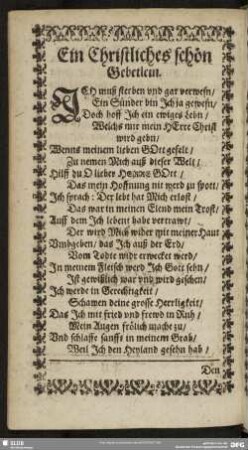 Ein Christliches schön
Gebetlein.
ICH muß sterben vnd gar verwesn/
Ein Sünder bin Ich ja gewesn/
Doch hoff Ich ein ewiges Lebn/
Welchs mir mein HErr Christ
wird gebn/
Wenns meinem lieben GOtt gefelt/
Zu nemen Mich auß dieser Welt/
Hilff du O lieber HERRE GOtt/
Das mein Hoffnung nit werd zu spott/
Ich sprach: Der lebt hat Mich erlost/
Das war in meinen Elend mein Trost/
Auff dem Ich lebent habe vertrawt/
Der wird Mich wider mit meiner Haut
Vmbgeben/ das Ich auß der Erd/
Vom Todte widr erwecket werd/
In meinem Fleisch werd Ich Gott sehn/
Ist gewißlich war vnd wird geschen/
Ich werde in Gerechtigkeit/
Schawen deine grosse Herrligkeit/
Das Ich mit fried vnd frewd in Ruh/
Mein Augen frölich mache zu/
Vnd schlaffe sanfft in meinem Grab/
Weil Ich den Heyland gesehn hab/
Den
SLUB